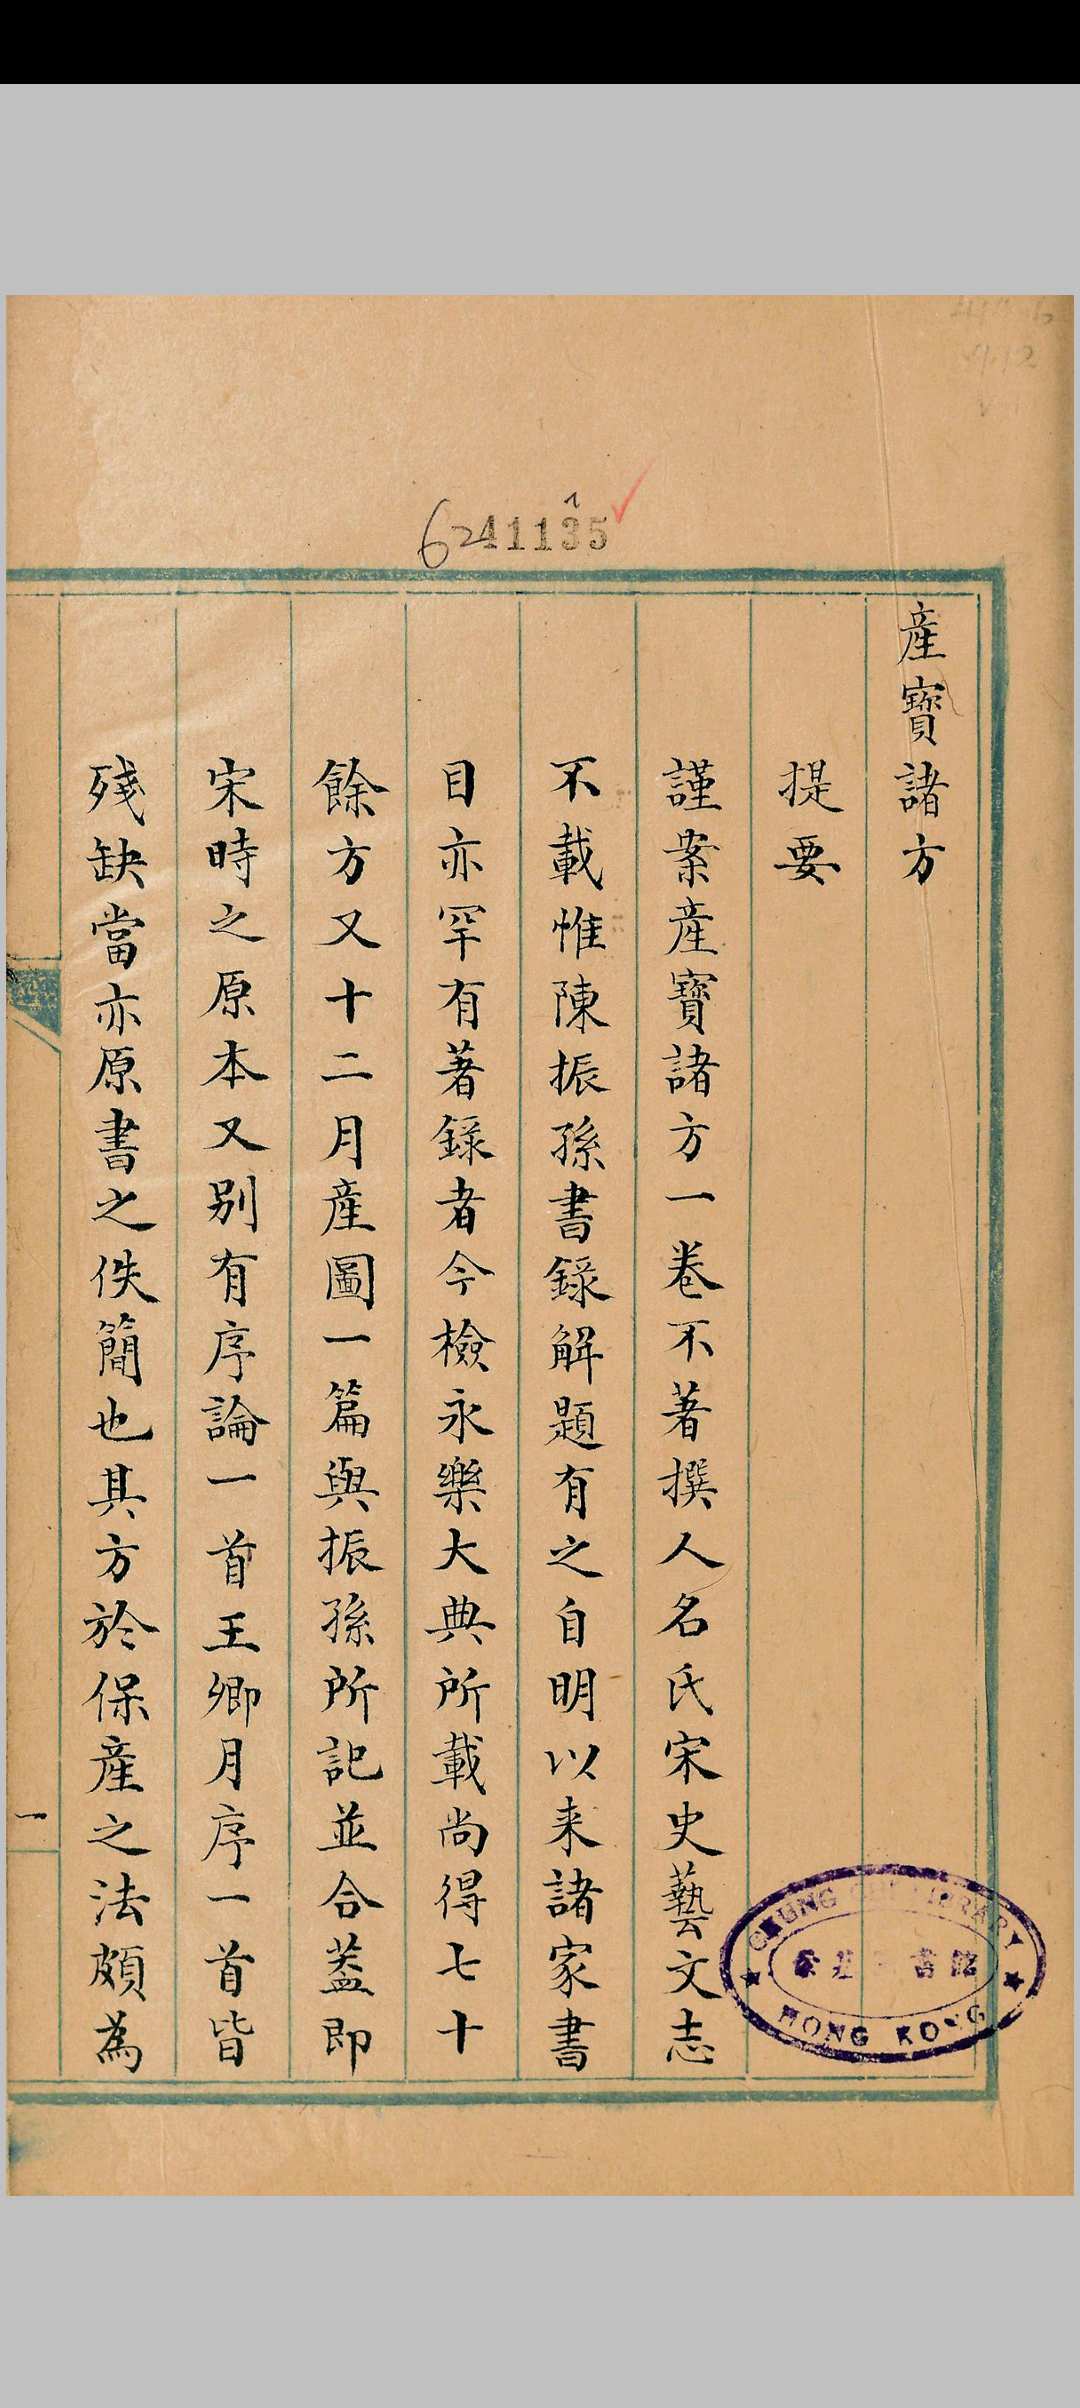 6241135
產寶諸方
提要
謹案產寶諸方一卷不著撰人名氏宋史藝文志
不載惟陳振孫書錄解題有之自明以来諸家書
目亦罕有著錄者今檢永樂大典所載尚得七十
餘方又十二月產圖一篇與振孫所記並合蓋即
宋時之原本又别有序論一首王卿月序一首皆
殘缺當亦原書之佚簡也其方於保產之法頗為
一
CHUNG CHI LIBRARY
HONG KONG